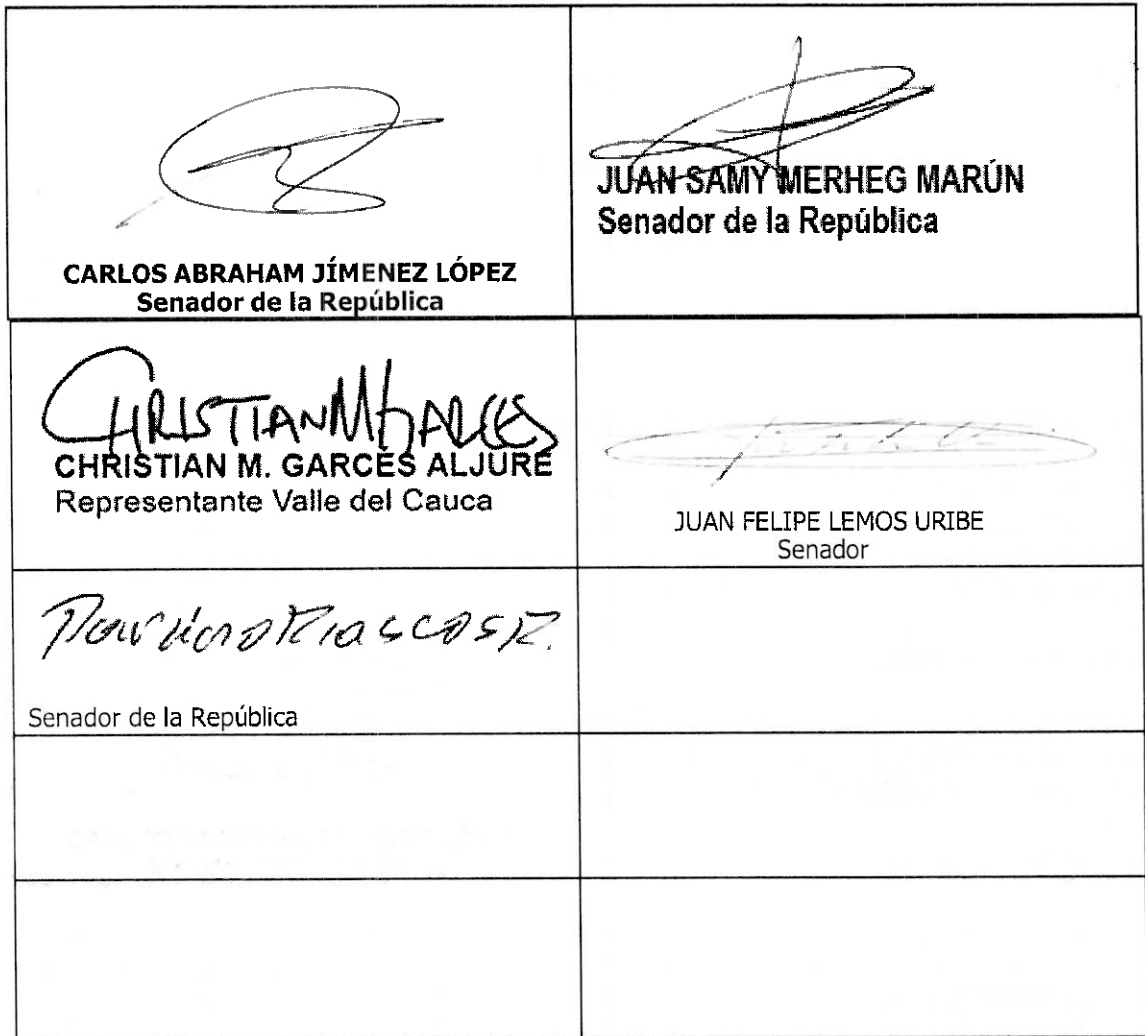 CARLOS ABRAHAM JÍMENEZ LÓPEZ
Senador de la República
JUAN SAMY MERHEG MARÚN
Senador de la República
CHRISTIAN M GARCES
CHRISTIAN M. GARCÉS ALJURE
Representante Valle del Cauca
JUAN FELIPE LEMOS URIBE
Senador
Senador de la República